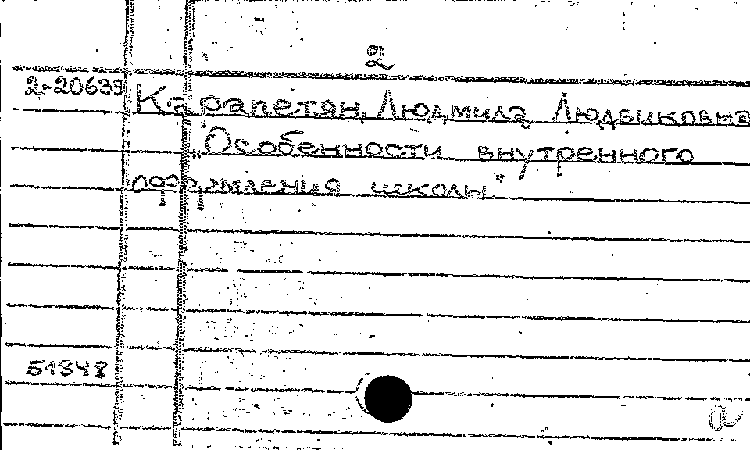 2
2-20639 Карапетян, Людмила Людвиковна
„Особенности внутренного
оформления школы"
51348
а